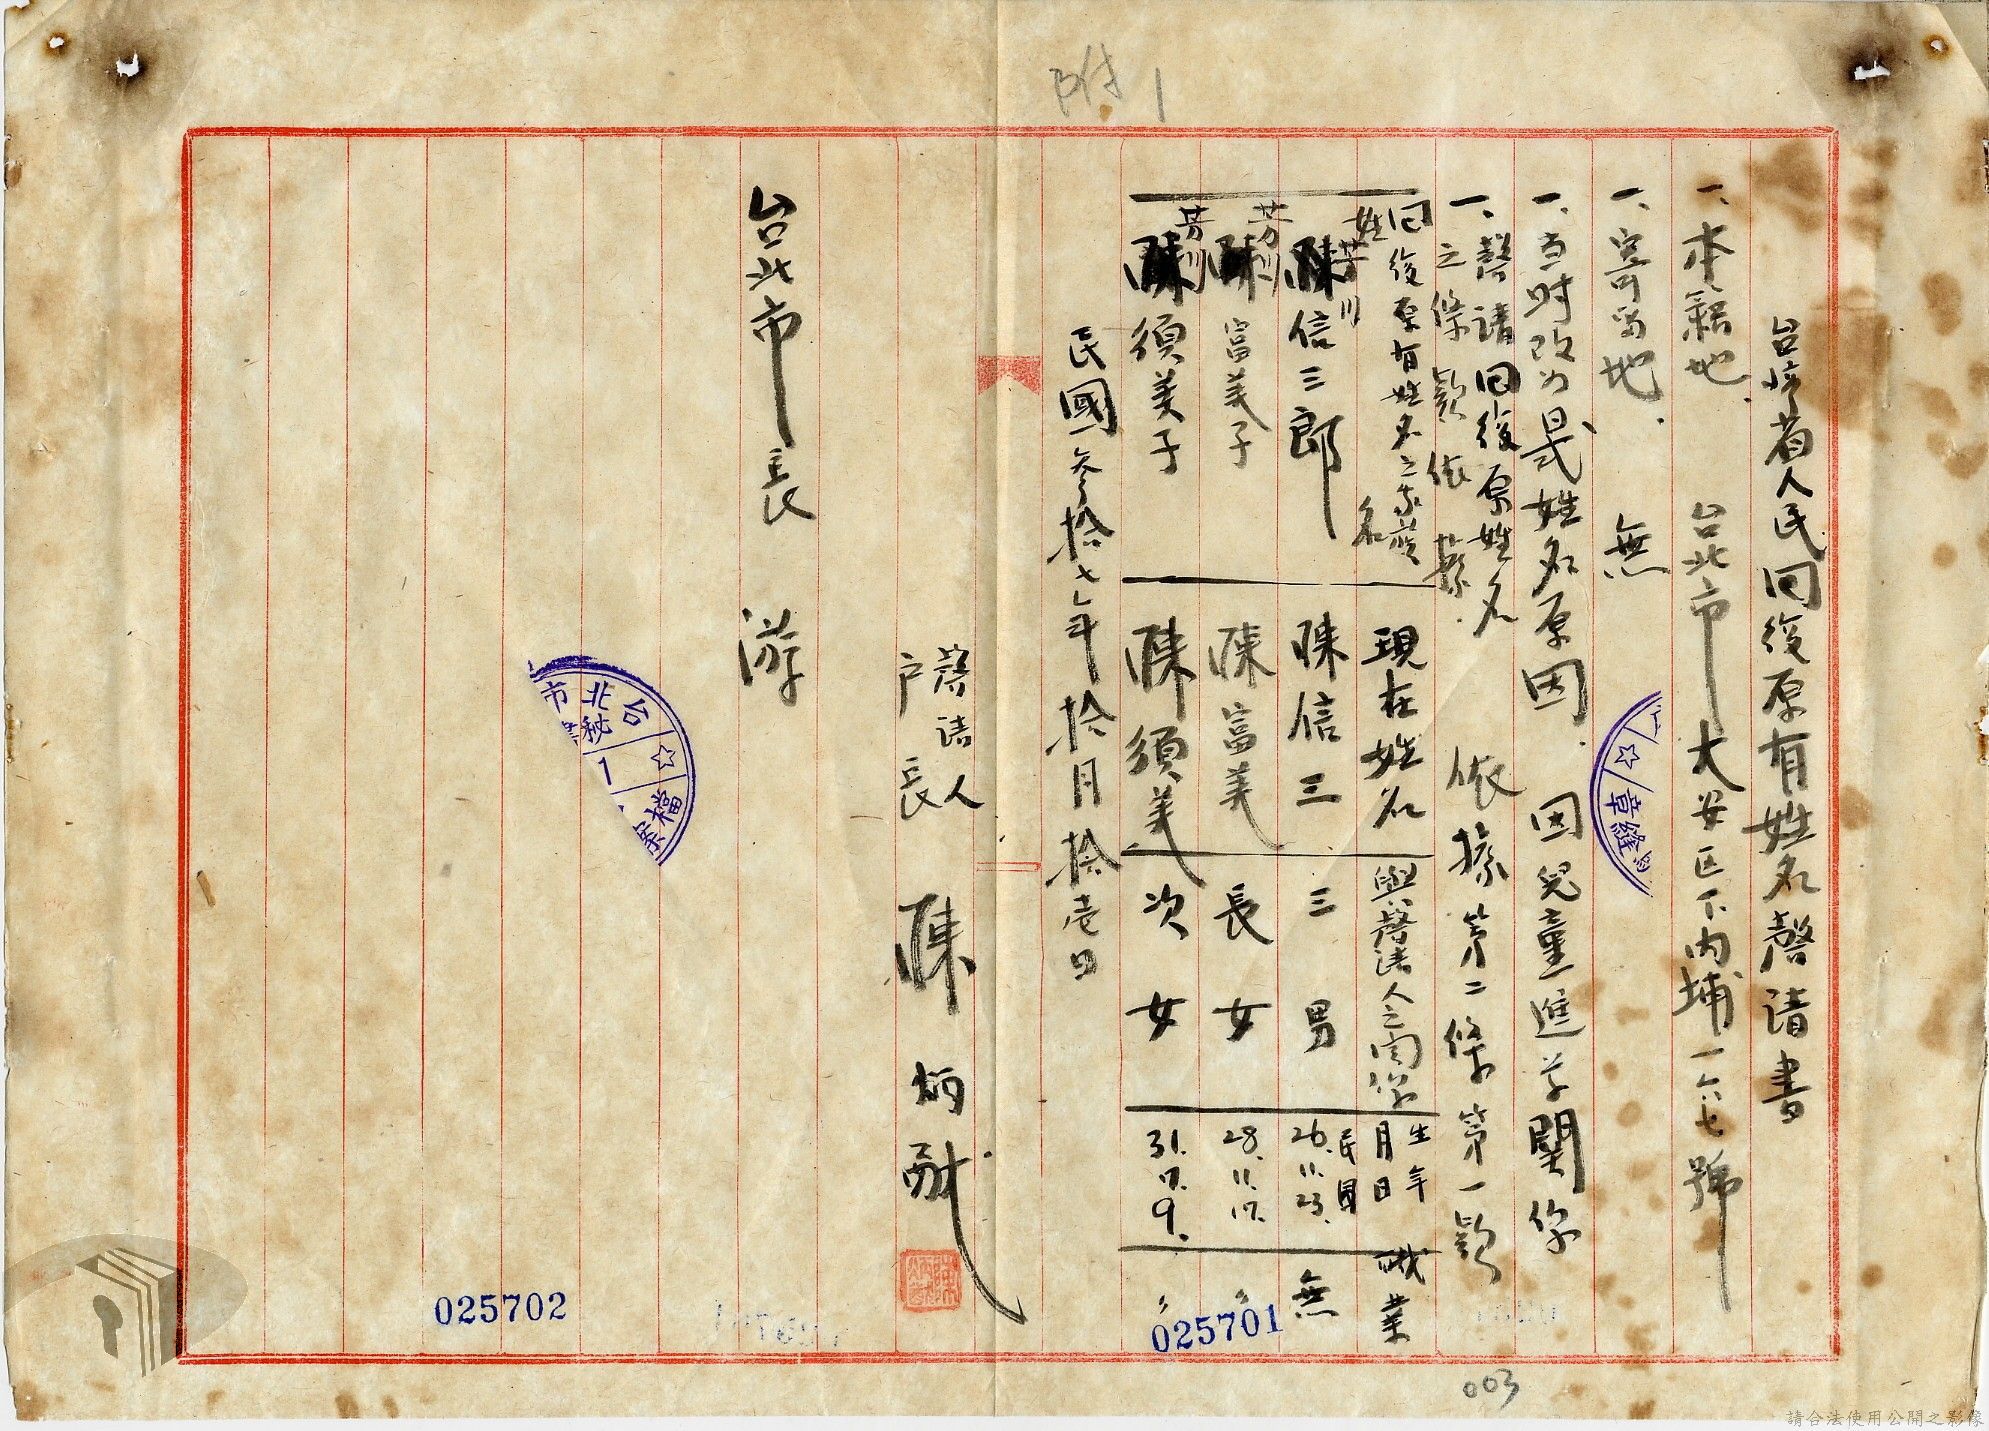 附1
台湾省人民回復原有姓名聲請書
一、本籍地 台北市大安区下内埔一六七號
一、寄留地 無
一、当时改为日式姓名原因 因兒童進学関係
一、聲請回復原姓名
之條款依據 依據第二條第一款
回復原有姓名之家族
姓 名
現在姓名
與聲請人之関係
生年
月日
職業
芳川
陳信三郎 陳信三 三男 民國 26.11.23. 無
芳川
陳富美子 陳富美 長女 28.11.17. 〃
芳川
陳須美子 陳須美 次女 31.7.9. 〃
民國叁拾七年拾月拾壱日
聲請人
户長 陳炳
台北市長 游
台北市
秘
1
檔案
☆
☆
章縫
025702
025701
003
請合法使用公開之影像